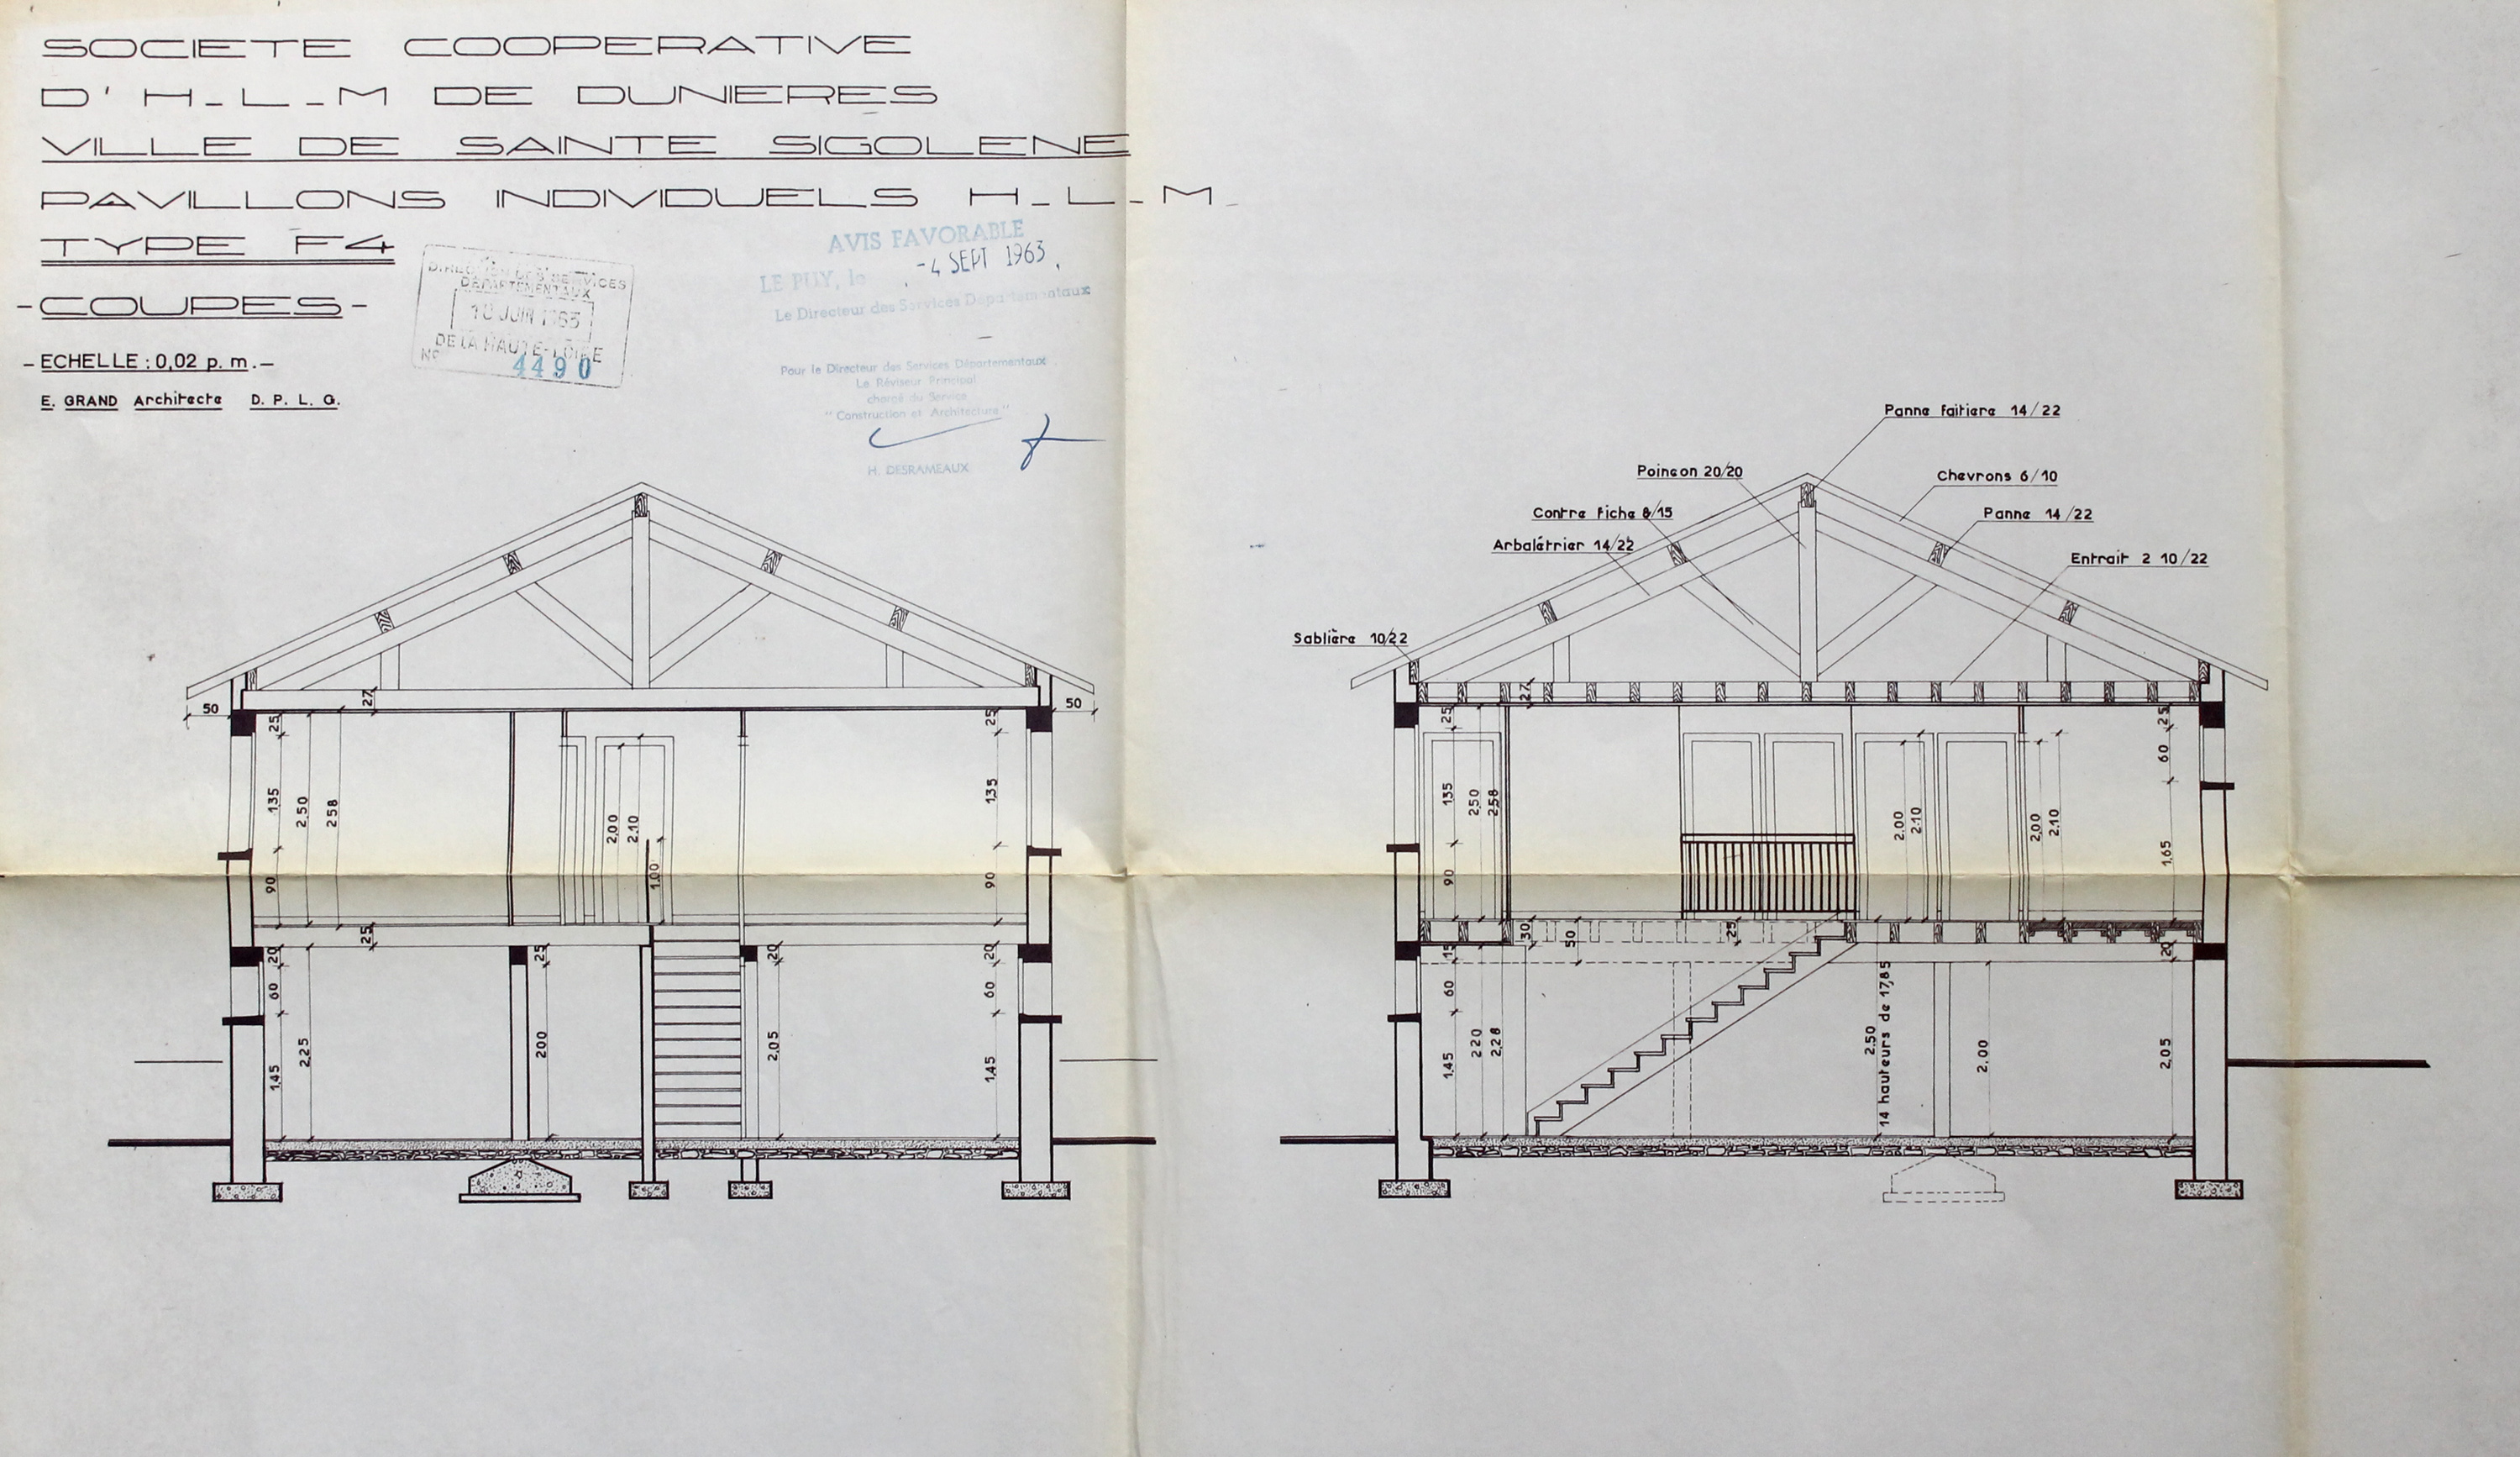 SOCIETE COOPERATIVE
D'H_L_M DE DUNIERES
VILLE DE SAINTE SIGOLENE
PAVILLONS INDIVIDUELS H_L_M_
TYPE F4
-COUPES-
- ECHELLE : 0,02 p. m. -
E. GRAND Architecte D. P. L. G.
DIRECTION DES SERVICES
DEPARTEMENTAUX
JUIN 1963
DE LA HAUTE-LOIRE
No 4490
AVIS FAVORABLE
LE PUY, le -4 SEPT 1963
Le Directeur des Services Départementaux
Pour le Directeur des Services Départementaux
Le Réviseur Principal
chargé du Service
"Construction et Architecture"
H. DESRAMEAUX
50
27
50
25
25
135
2,50
258
2,00
2,10
1,00
135
90
90
25
20
25
20
20
60
60
1,45
2,25
200
2,05
1,45
Panne faitiere 14/22
Poinçon 20/20
Chevrons 6/10
Contre fiche 8/15
Panne 14/22
Arbalétrier 14/22
Entrait 2 10/22
Sablière 10/22
27
25
25
60
135
250
258
2,00
2.10
2,00
2,10
1,65
90
30
50
25
15
20
60
1,45
220
2,28
2,50
14 hauteurs de 17,85
2,00
2,05